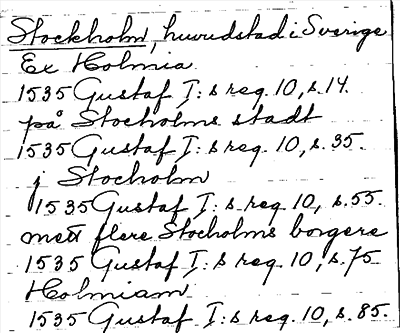 Stockholm, huvudstad i Sverige
Ex Holmia
1535 Gustaf I: s reg. 10, s. 14.
på Stocholms stadt
1535 Gustaf I: s reg. 10, s. 35.
j Stocholm
1535 Gustaf I: s reg. 10, s. 55.
mett flere Stocholms borgere
1535 Gustaf I: s reg. 10, s. 75
Holmiam
1535 Gustaf I: s reg. 10, s. 85.